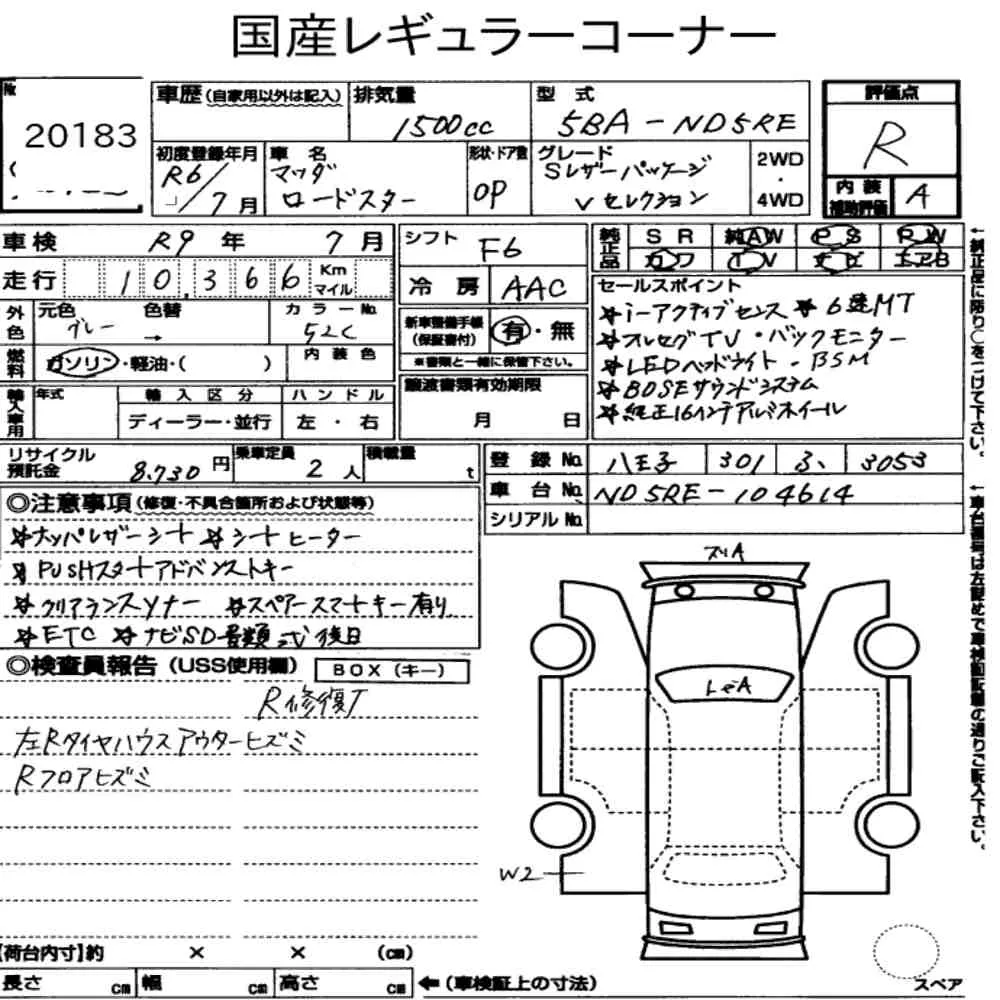 国産レギュラーコーナー
No. 20183
車歴(自家用以外は記入)
排気量 1500cc
型式 5BA-ND5RE
評価点 R
内装補助評価 A
初度登録年月 R6/7月
車名 マツダ ロードスター
形状・ドア数 OP
グレード Sレザーパッケージ Vセレクション
2WD・4WD
車検 R9年 7月
シフト F6
純正品 SR 純AW PS PW
カワ TV ナビ エアB
走行 10,366 Km マイル
冷房 AAC
セールスポイント
☆i-アクティブセンス ☆6速MT
☆フルセグTV・バックモニター
☆LEDヘッドライト・BSM
☆BOSEサウンドシステム
☆純正16インチアルミホイール
外色 元色 グレー → 色替
カラーNo. 52C
新車整備手帳(保証書付) 有・無
※書類と一緒に保管下さい。
燃料 ガソリン・軽油・( )
内装色
譲渡書類有効期限 月 日
輸入車用 年式
輸入区分 ディーラー・並行
ハンドル 左・右
リサイクル預託金 8,730円
乗車定員 2人
積載量 t
登録No. 八王子 301 る 3053
車台No. ND5RE-104614
シリアルNo.
◎注意事項(修復・不具合箇所および状態等)
☆ナッパレザーシート ☆シートヒーター
☆PUSHスタートアドバンストキー
☆クリアランスソナー ☆スペアースマートキー有り
☆ETC ☆ナビSD 書類一式後日
◎検査員報告(USS使用欄)
BOX(キー)
R修復T
左Rタイヤハウスアウターヒズミ
Rフロアヒズミ
スリA
トビA
W2
【荷台内寸】約 × × (cm)
長さ cm 幅 cm 高さ cm ←(車検証上の寸法)
スペア
←純正品に限り○をつけて下さい。
←車台番号は左詰めで車検証記載の通りご記入下さい。